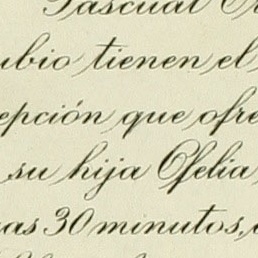 Pascual O
ubio tienen el
epción que ofre
su hija Ofelia,
ras 30 minutos,